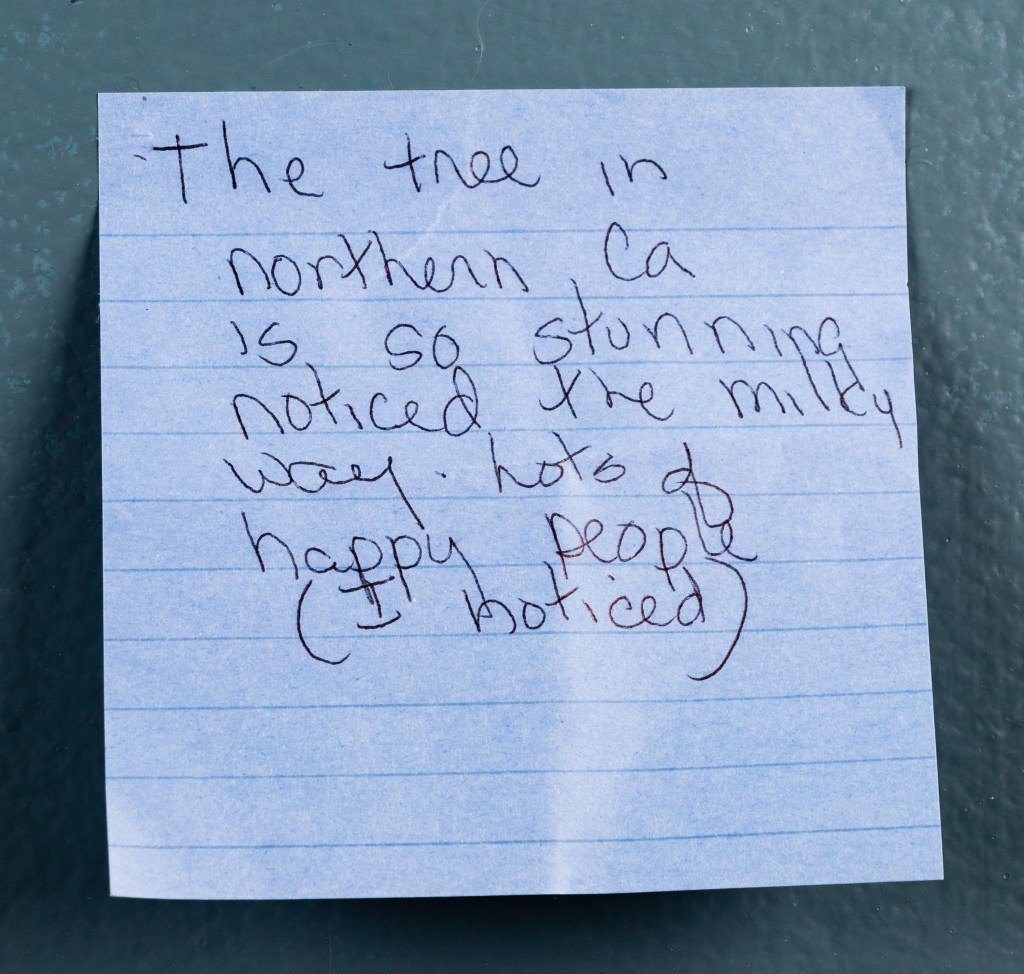 The tree in
northern Ca
is so stunning
noticed the milky
way. Lots of
happy people
(I noticed)